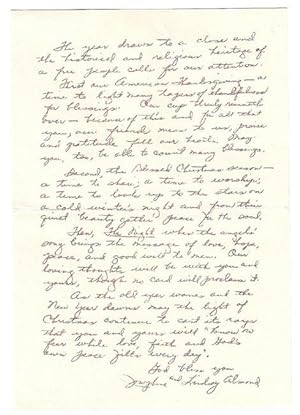 The year draws to a close and
the historical and religious heritage of
a free people calls for our attention.
First our American Thanksgiving - a
time to light many tapers of thankfulness
for blessings. Our cup truly runneth
over - because of this and for all that
you, our friends mean to us, praise
and gratitude fill our hearts. May
you, too, be able to count many blessings.
Second the Blessed Christmas season -
a time to share; a time to worship;
a time to look up to the stars on
a cold winter night and from their
quiet beauty gather peace in the soul.
Then, The Night when the angels'
song brings the message of love, hope,
peace, and good will to men. Our
loving thoughts will be with you and
yours, though no card will proclaim it.
As the old year wanes and the
New Year dawns may the light of
Christmas continue to cast its rays
that you and yours will "know no
fear while love, faith and God's
own peace fills every day".
God bless you
Josephine and Lindsay Almond